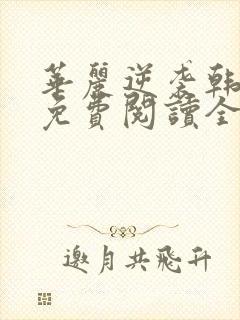 華麗逆袭韩
免費閱讀全
邀月共飛升